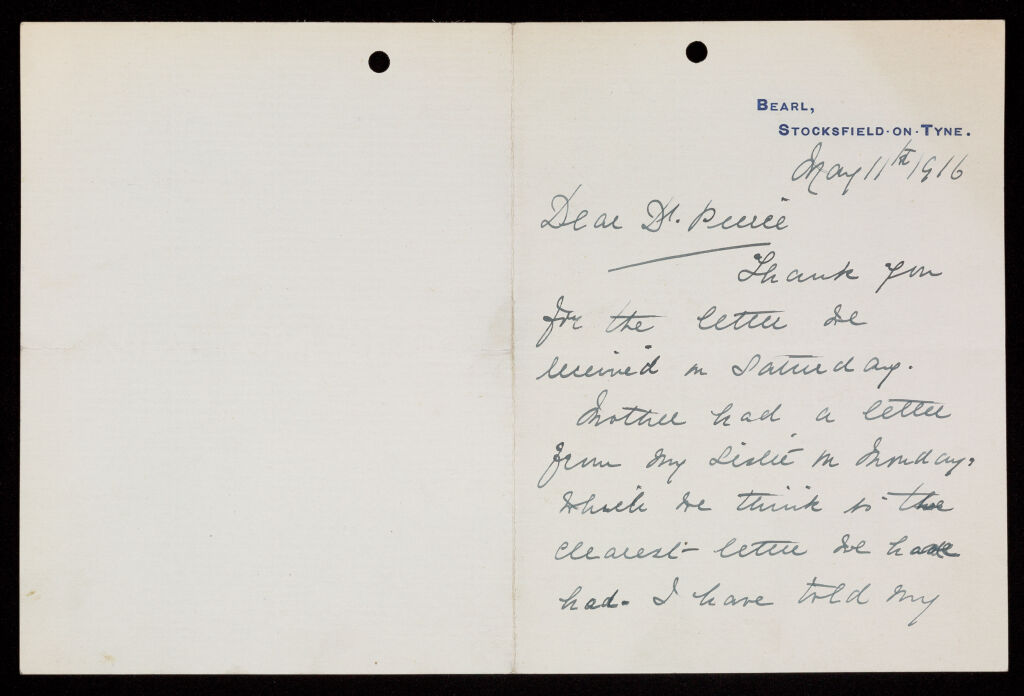 BEARL,
STOCKSFIELD-ON-TYNE.
May 11th 1916
Dear Dr. Pierce
Thank you
for the letter we
received on Saturday.
Mother had a letter
from my sister on Monday,
which we think is the
clearest letter we have
had. I have told my